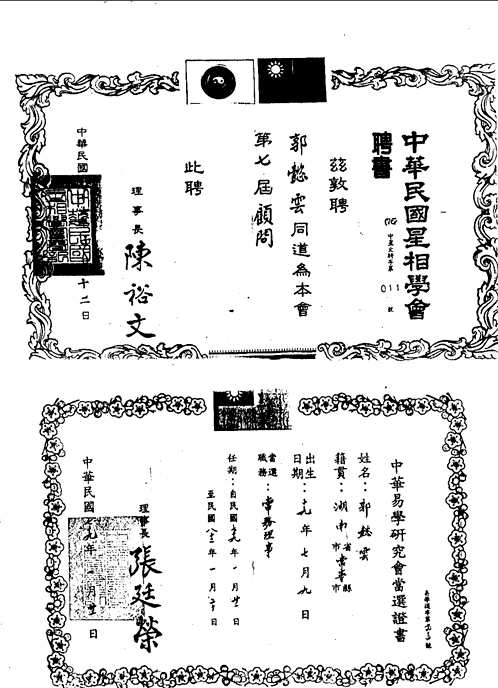 中華民國星相學會
聘書
茲敦聘
郭懿雲同道為本會
第七屆顧問
此聘
理事長 陳裕文
中華民國
十二日
中華易學研究會當選證書
姓名：郭懿雲
籍貫：湖南省市 縣市
出生日期： 九年七月九日
當選職務：常務理事
任期：自民國 九年一月廿一日
至民國八三年一月二十日
理事長 張廷榮
中華民國 九年一月廿一日